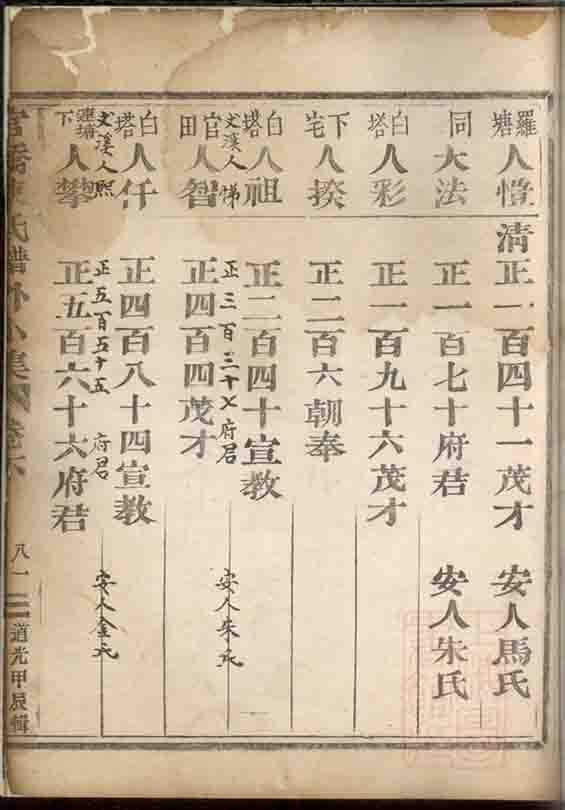 羅塘 人憕 清 正一百四十一茂才 安人馬氏
同 大法 正一百七十府君 安人朱氏
白塔 人彩 正一百九十六茂才
下宅 人揆 正二百六朝奉
白塔 人祖 正二百四十宣教
文溪人悌 正三百三十七府君 安人朱氏
官田 人智 正四百四茂才
白塔 人仟 正四百八十四宣教
文溪人熙 正五百五十五府君 安人金氏
蓮塘下 人攀 正五百六十六府君
氏譜外小集 卷六 八一 道光甲辰輯